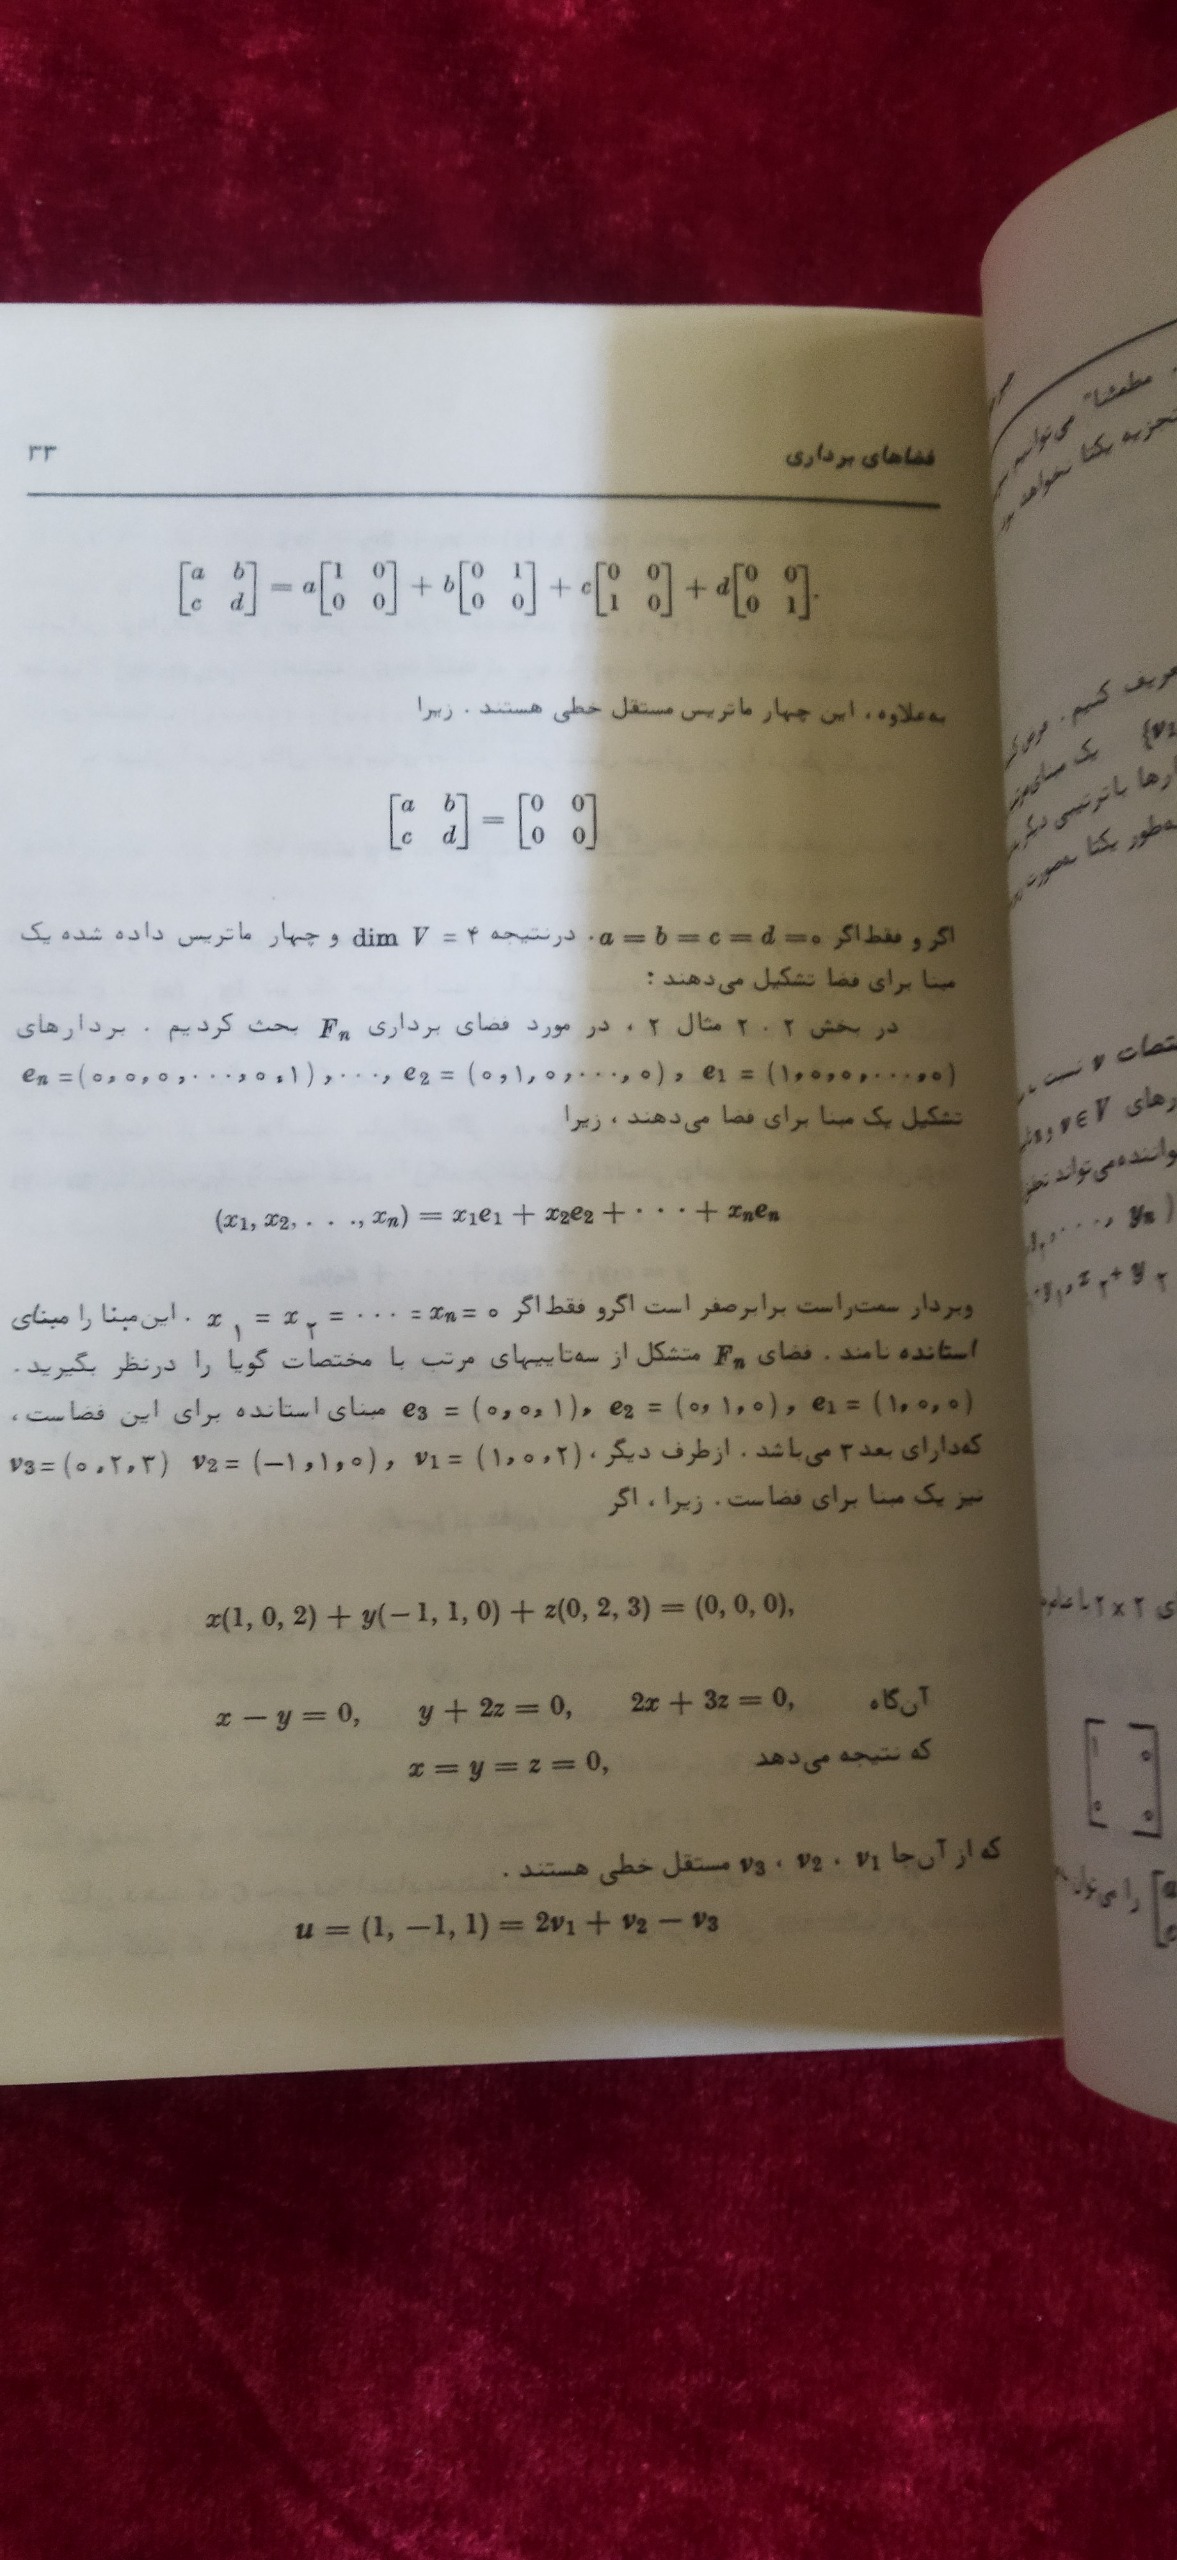 فضاهای برداری ۳۳
[a b; c d] = a[1 0; 0 0] + b[0 1; 0 0] + c[0 0; 1 0] + d[0 0; 0 1].
به‌علاوه، این چهار ماتریس مستقل خطی هستند. زیرا
[a b; c d] = [0 0; 0 0]
اگر و فقط اگر a = b = c = d = ۰. درنتیجه dim V = ۴ و چهار ماتریس داده شده یک
مبنا برای فضا تشکیل می‌دهند :
در بخش ۲.۲ مثال ۲، در مورد فضای برداری Fn بحث کردیم. بردارهای
e1 = (۱,۰,۰,...,۰), e2 = (۰,۱,۰,...,۰), ..., en = (۰,۰,۰,...,۰,۱)
تشکیل یک مبنا برای فضا می‌دهند، زیرا
(x1, x2, . . ., xn) = x1e1 + x2e2 + · · · + xnen
وبردار سمت‌راست برابر صفر است اگر و فقط اگر x۱ = x۲ = ··· = xn = ۰. این مبنا را مبنای
استانده نامند. فضای Fn متشکل از سه‌تاییهای مرتب با مختصات گویا را درنظر بگیرید.
e1 = (۱,۰,۰), e2 = (۰,۱,۰), e3 = (۰,۰,۱) مبنای استانده برای این فضاست،
که‌دارای بعد ۳ می‌باشد. ازطرف دیگر، v1 = (۱,۰,۲), v2 = (−۱,۱,۰) v3 = (۰,۲,۳)
نیز یک مبنا برای فضاست. زیرا، اگر
x(1, 0, 2) + y(−1, 1, 0) + z(0, 2, 3) = (0, 0, 0),
آن‌گاه x − y = 0, y + 2z = 0, 2x + 3z = 0,
که نتیجه می‌دهد x = y = z = 0,
که از آن‌جا v1، v2، v3 مستقل خطی هستند.
u = (1, −1, 1) = 2v1 + v2 − v3